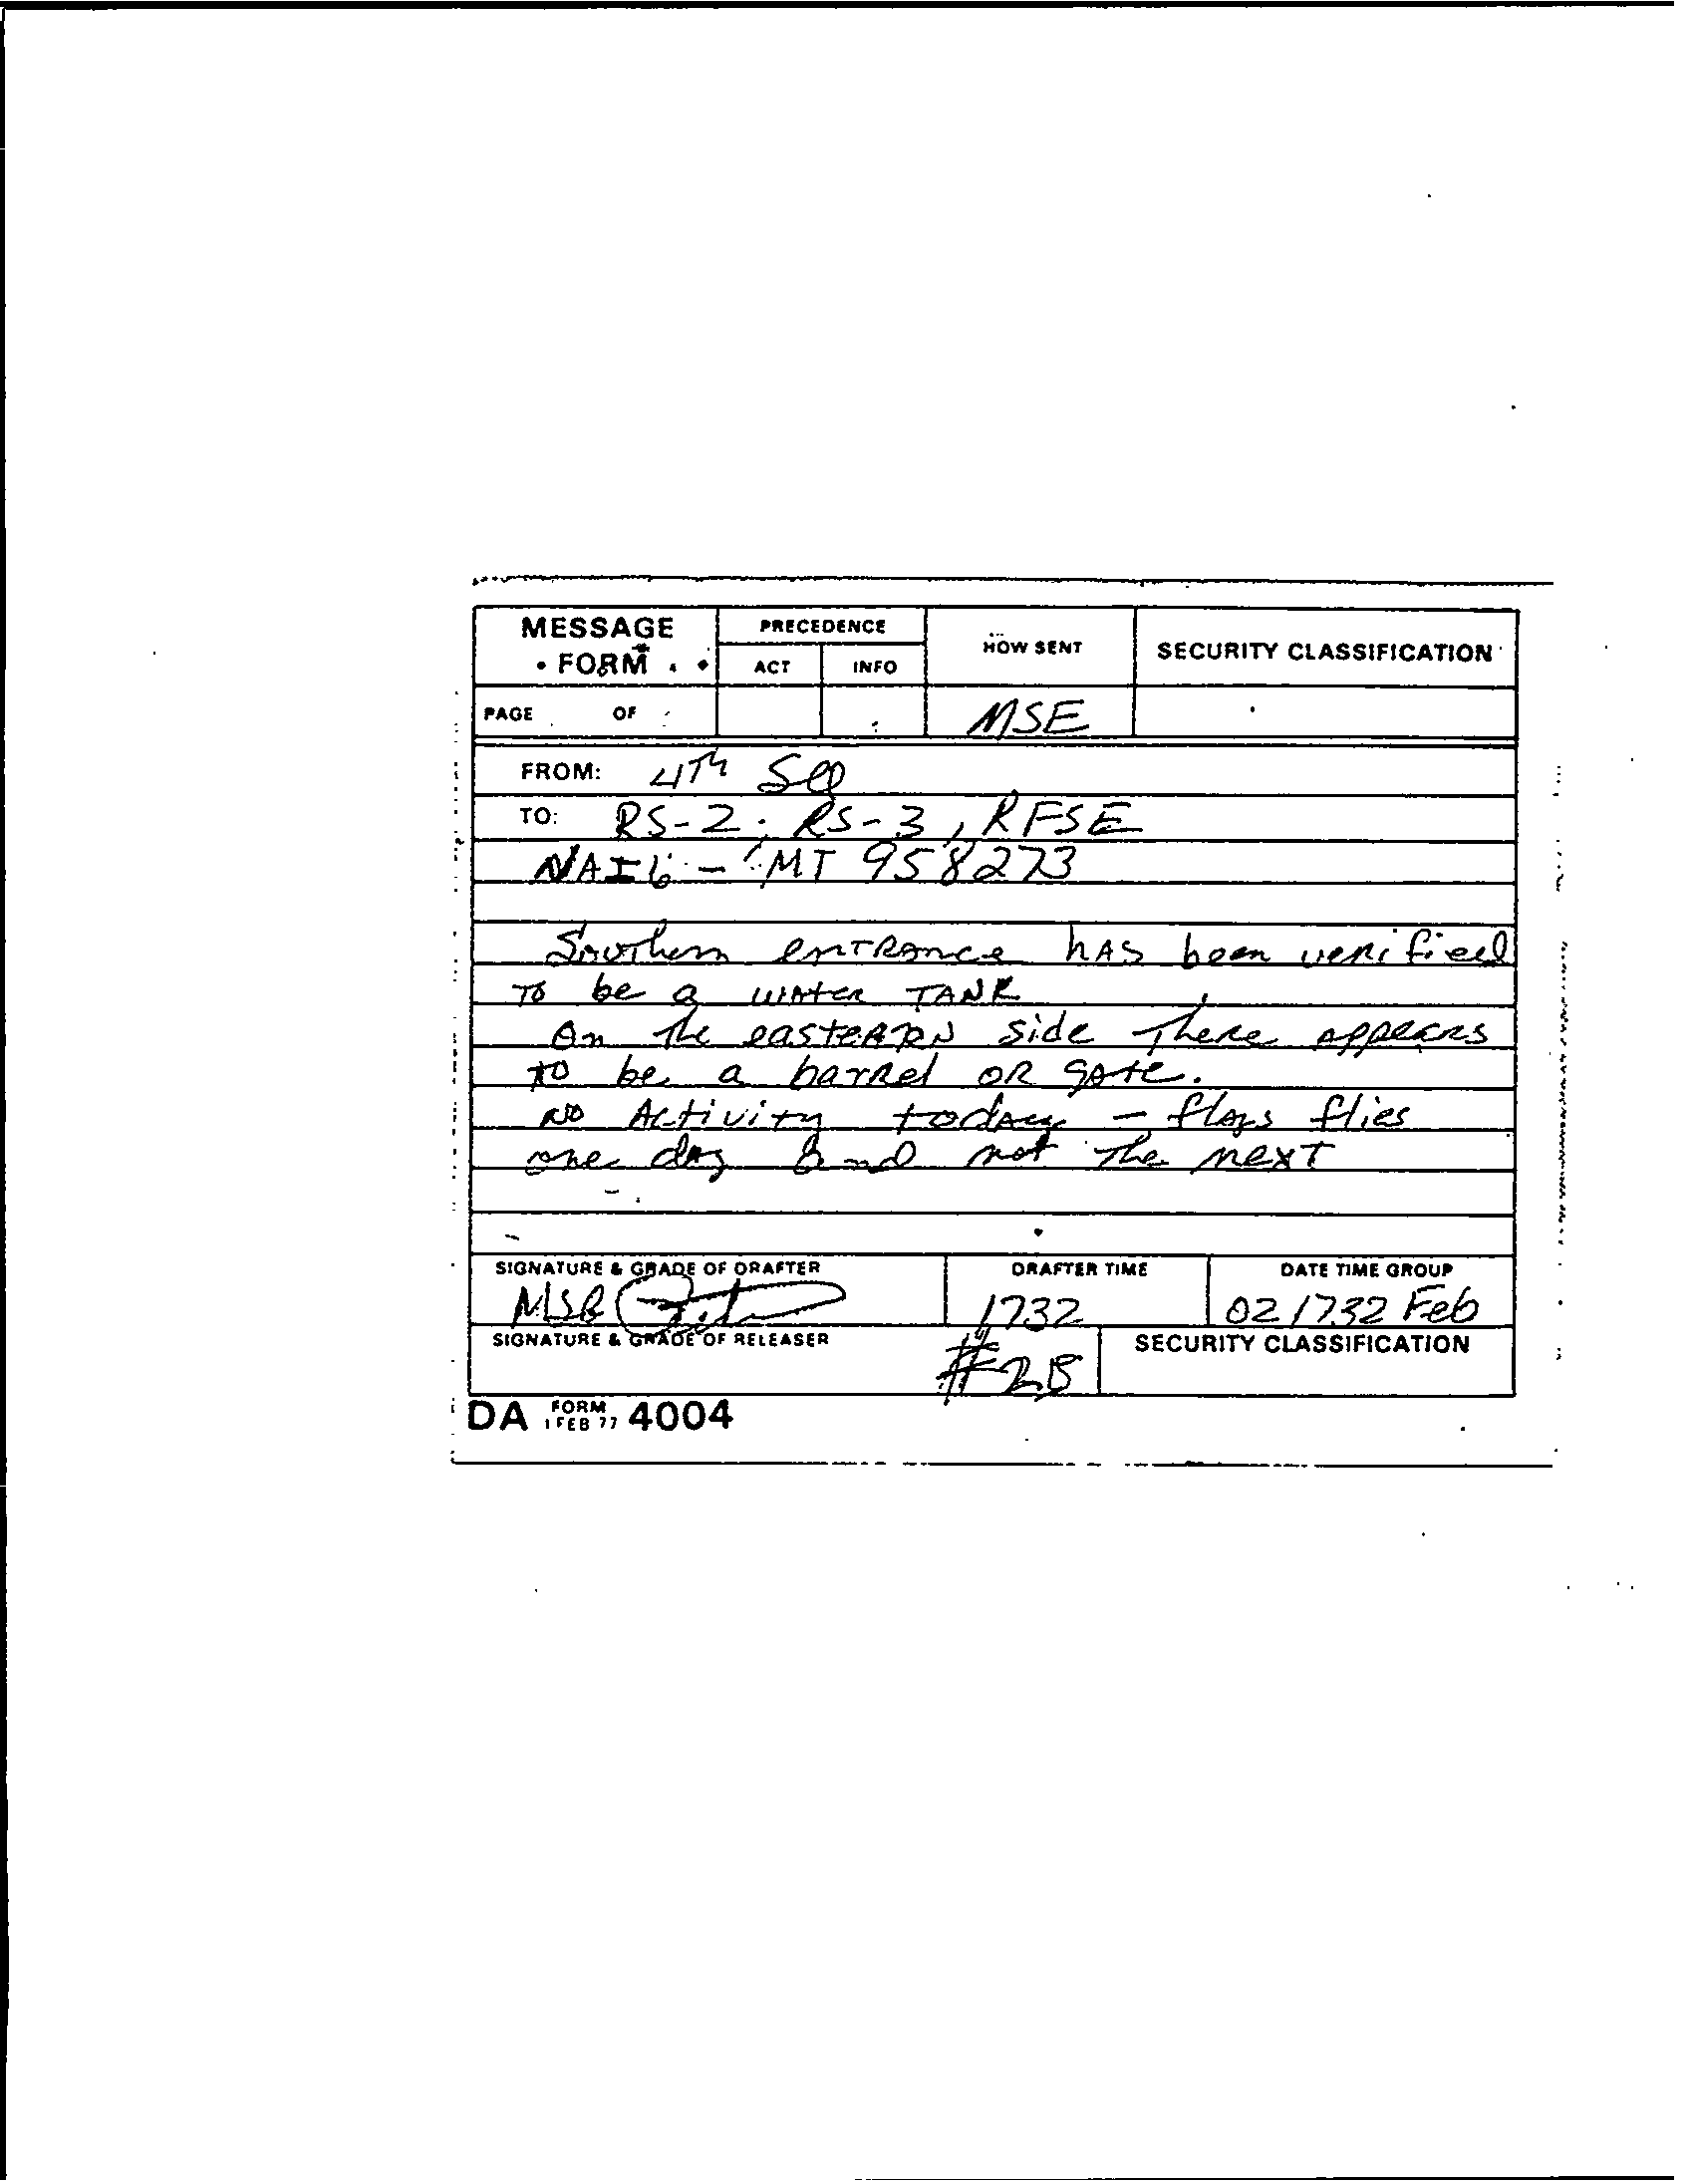 MESSAGE
FORM
PRECEDENCE
ACT
INFO
HOW SENT
SECURITY CLASSIFICATION
PAGE OF
MSE
FROM: 4Th SQ
TO: RS-2; RS-3, RFSE
NAI 6 - MT 958273
Southern enTRance hAS been veRified
To be a wAteR TANK
On The easteARN side There AppeARS
to be a barRel OR gAte.
no Activity todAy - flAgs flies
one dAy and not The nexT
SIGNATURE & GRADE OF DRAFTER
DRAFTER TIME
DATE TIME GROUP
1732
021732 Feb
SIGNATURE & GRADE OF RELEASER
SECURITY CLASSIFICATION
DA FORM 1 FEB 77 4004